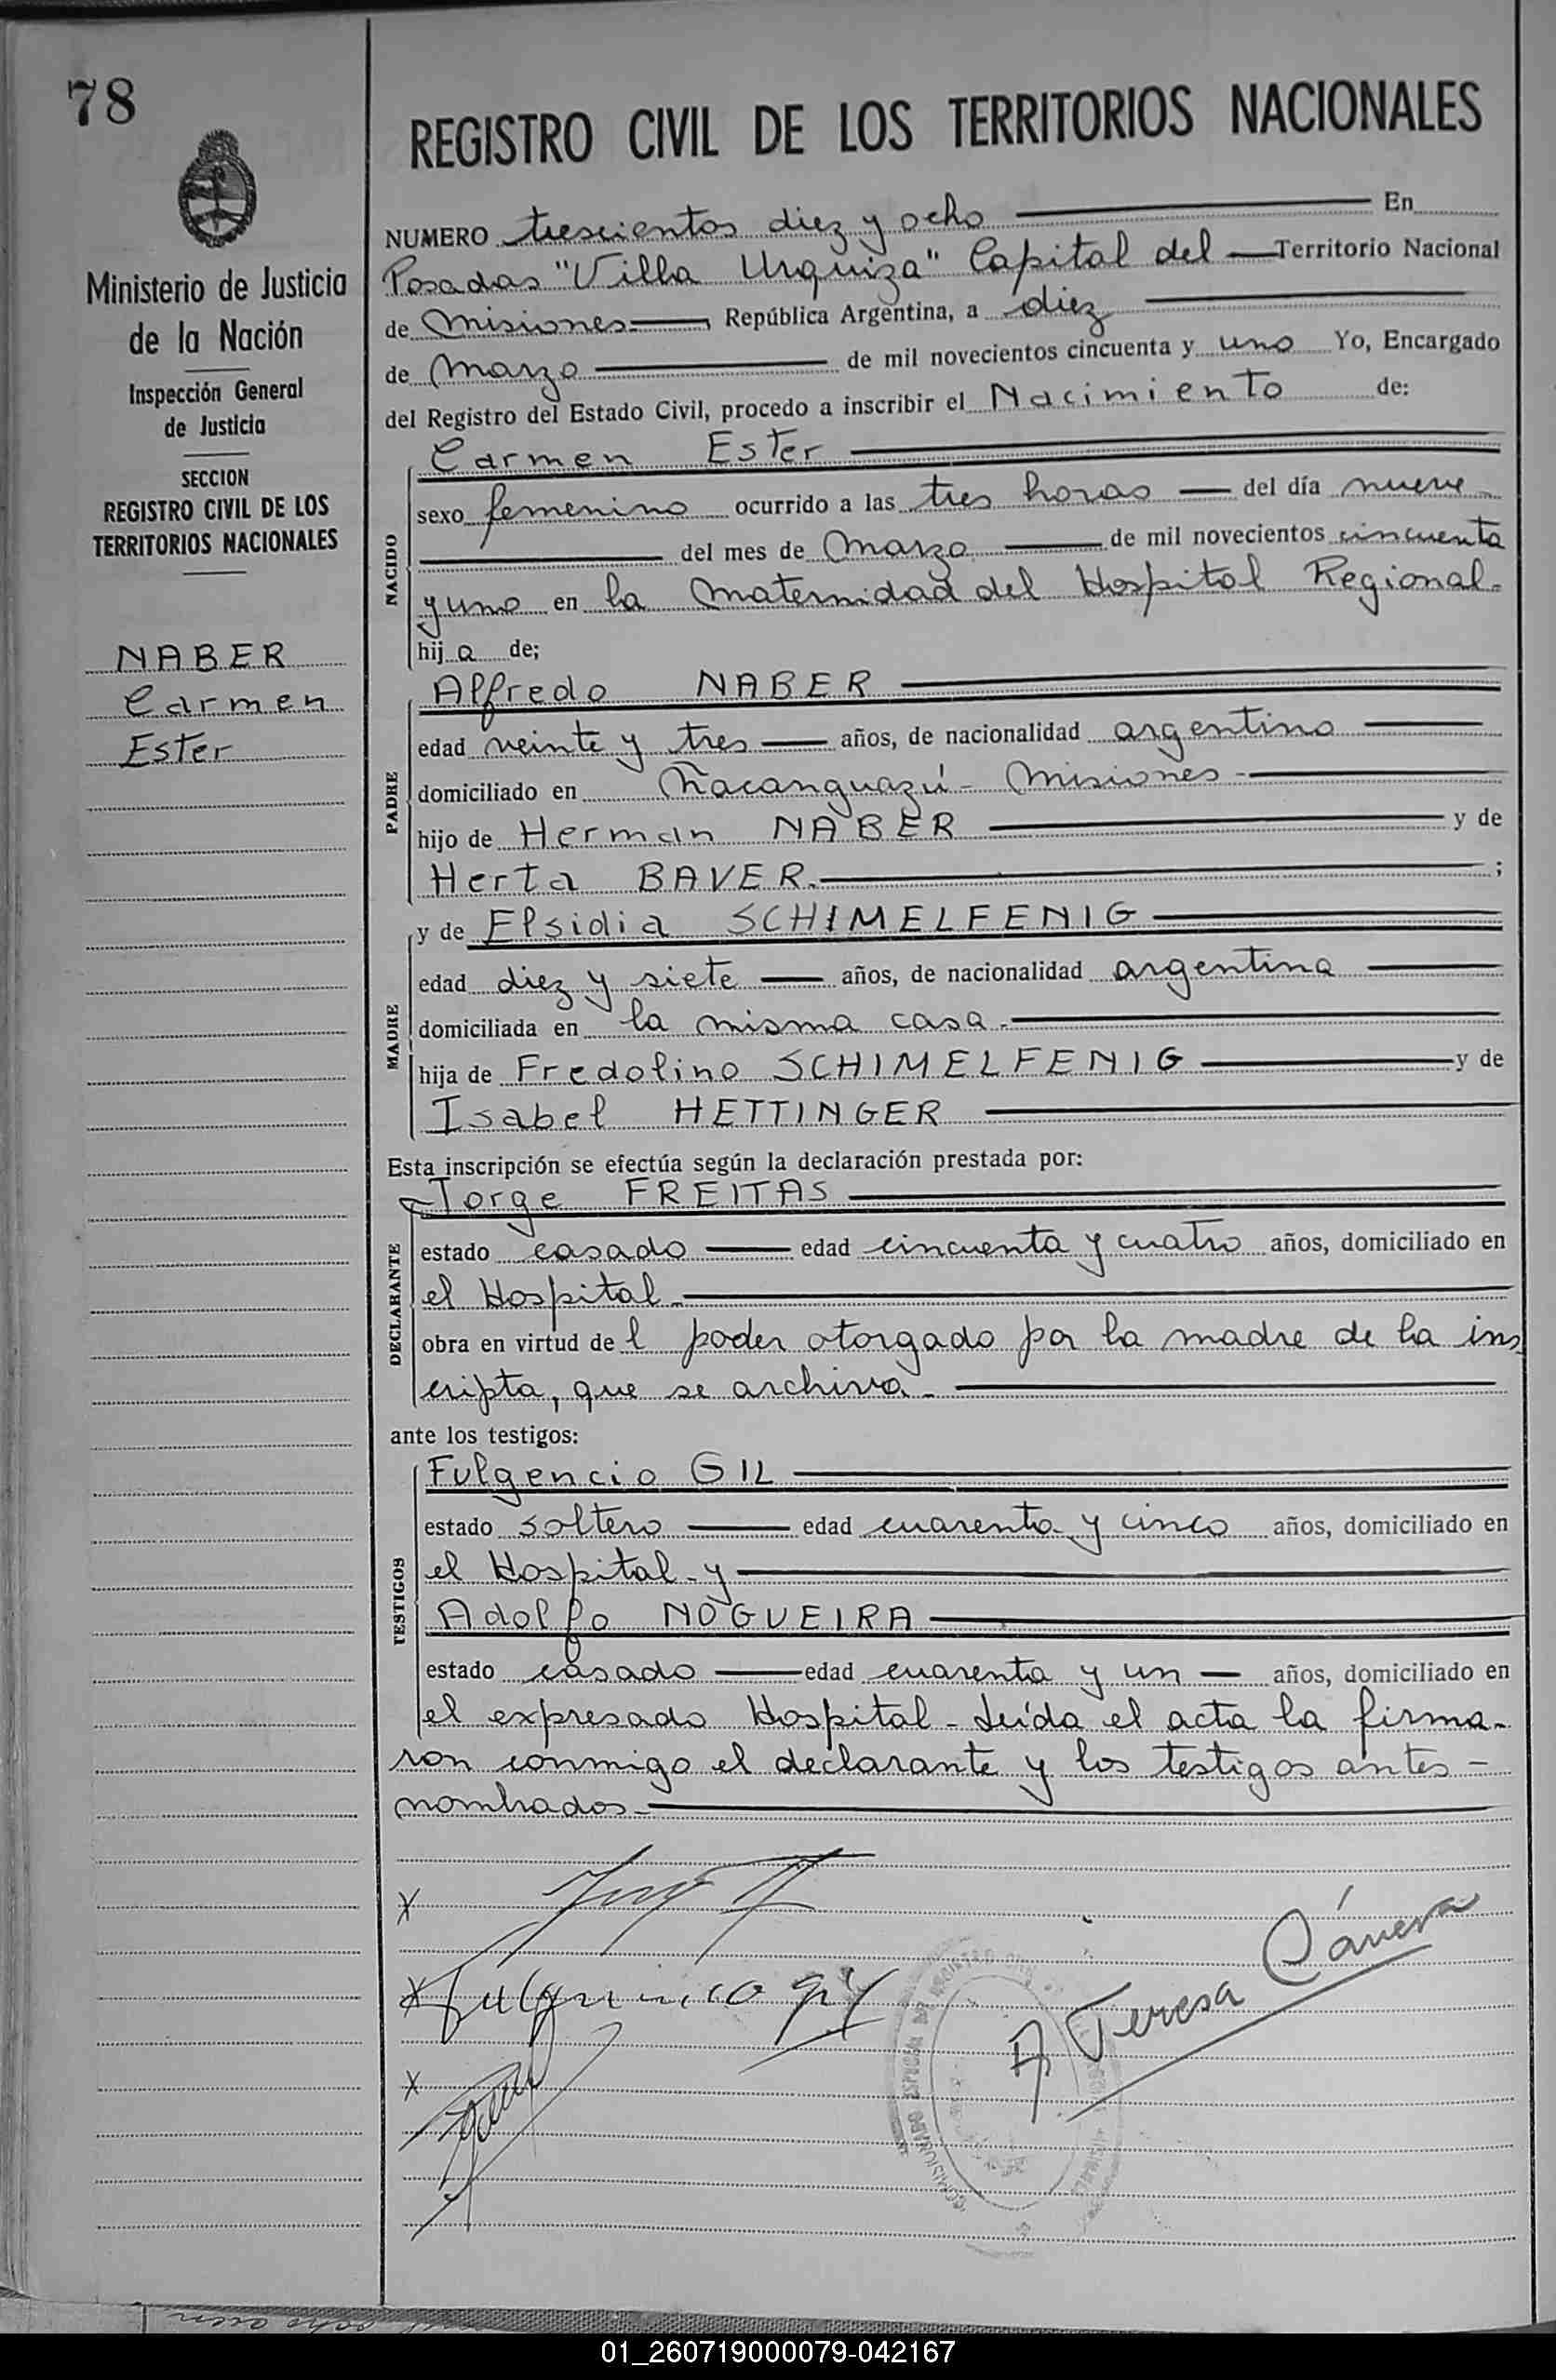 78
Ministerio de Justicia
de la Nación
Inspección General
de Justicia
SECCION
REGISTRO CIVIL DE LOS
TERRITORIOS NACIONALES
NABER
Carmen
Ester
REGISTRO CIVIL DE LOS TERRITORIOS NACIONALES
NUMERO trescientos diez y ocho En
Posadas "Villa Urquiza" Capital del Territorio Nacional
de Misiones, República Argentina, a diez
de Marzo de mil novecientos cincuenta y uno Yo, Encargado
del Registro del Estado Civil, procedo a inscribir el Nacimiento de:
NACIDO
Carmen Ester
sexo femenino ocurrido a las tres horas del día nueve
del mes de Marzo de mil novecientos cincuenta
y uno en la Maternidad del Hospital Regional-
hija de;
PADRE
Alfredo NABER
edad veinte y tres años, de nacionalidad argentino
domiciliado en Ñacanguazú - Misiones -
hijo de Herman NABER y de
Herta BAVER. ;
MADRE
y de Elsidia SCHIMELFENIG
edad diez y siete años, de nacionalidad argentina
domiciliada en la misma casa -
hija de Fredolino SCHIMELFENIG y de
Isabel HETTINGER
Esta inscripción se efectúa según la declaración prestada por:
DECLARANTE
Jorge FREITAS
estado casado edad cincuenta y cuatro años, domiciliado en
el Hospital -
obra en virtud del poder otorgado por la madre de la ins
cripta, que se archiva -
ante los testigos:
TESTIGOS
Fulgencio GIL
estado soltero edad cuarenta y cinco años, domiciliado en
el Hospital - y
Adolfo NOGUEIRA
estado casado edad cuarenta y un años, domiciliado en
el expresado Hospital - Leída el acta la firma-
ron conmigo el declarante y los testigos antes -
nombrados -
x
x Fulgencio Gil
x
A Teresa Cáneva
COMISIONADO ESPECIAL DEL REGISTRO
01_260719000079-042167